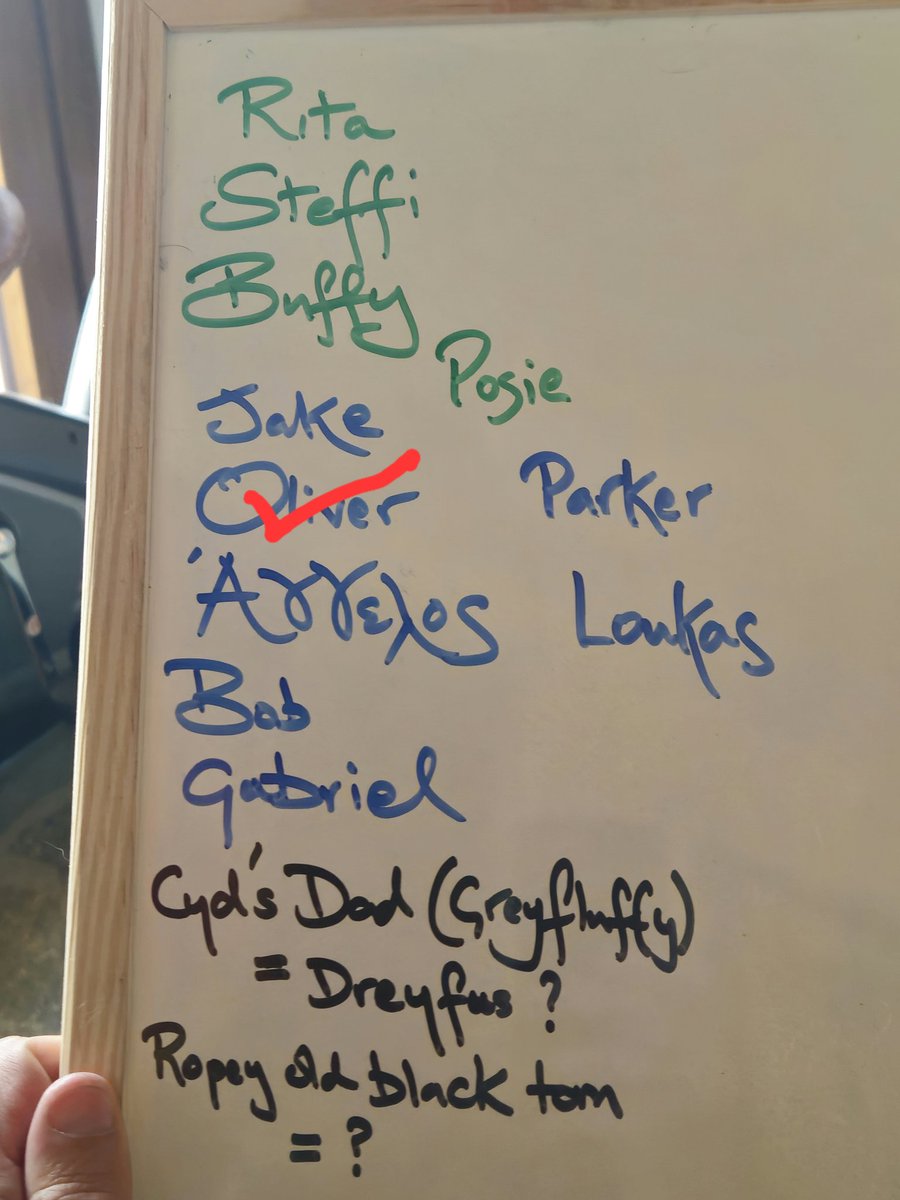 Rita
Steffi
Buffy
Posie
Jake
Oliver Parker
Άγγελος Loukas
Bob
Gabriel
Cyd's Dad (Greyfluffy)
= Dreyfus ?
Ropey old black tom
= ?